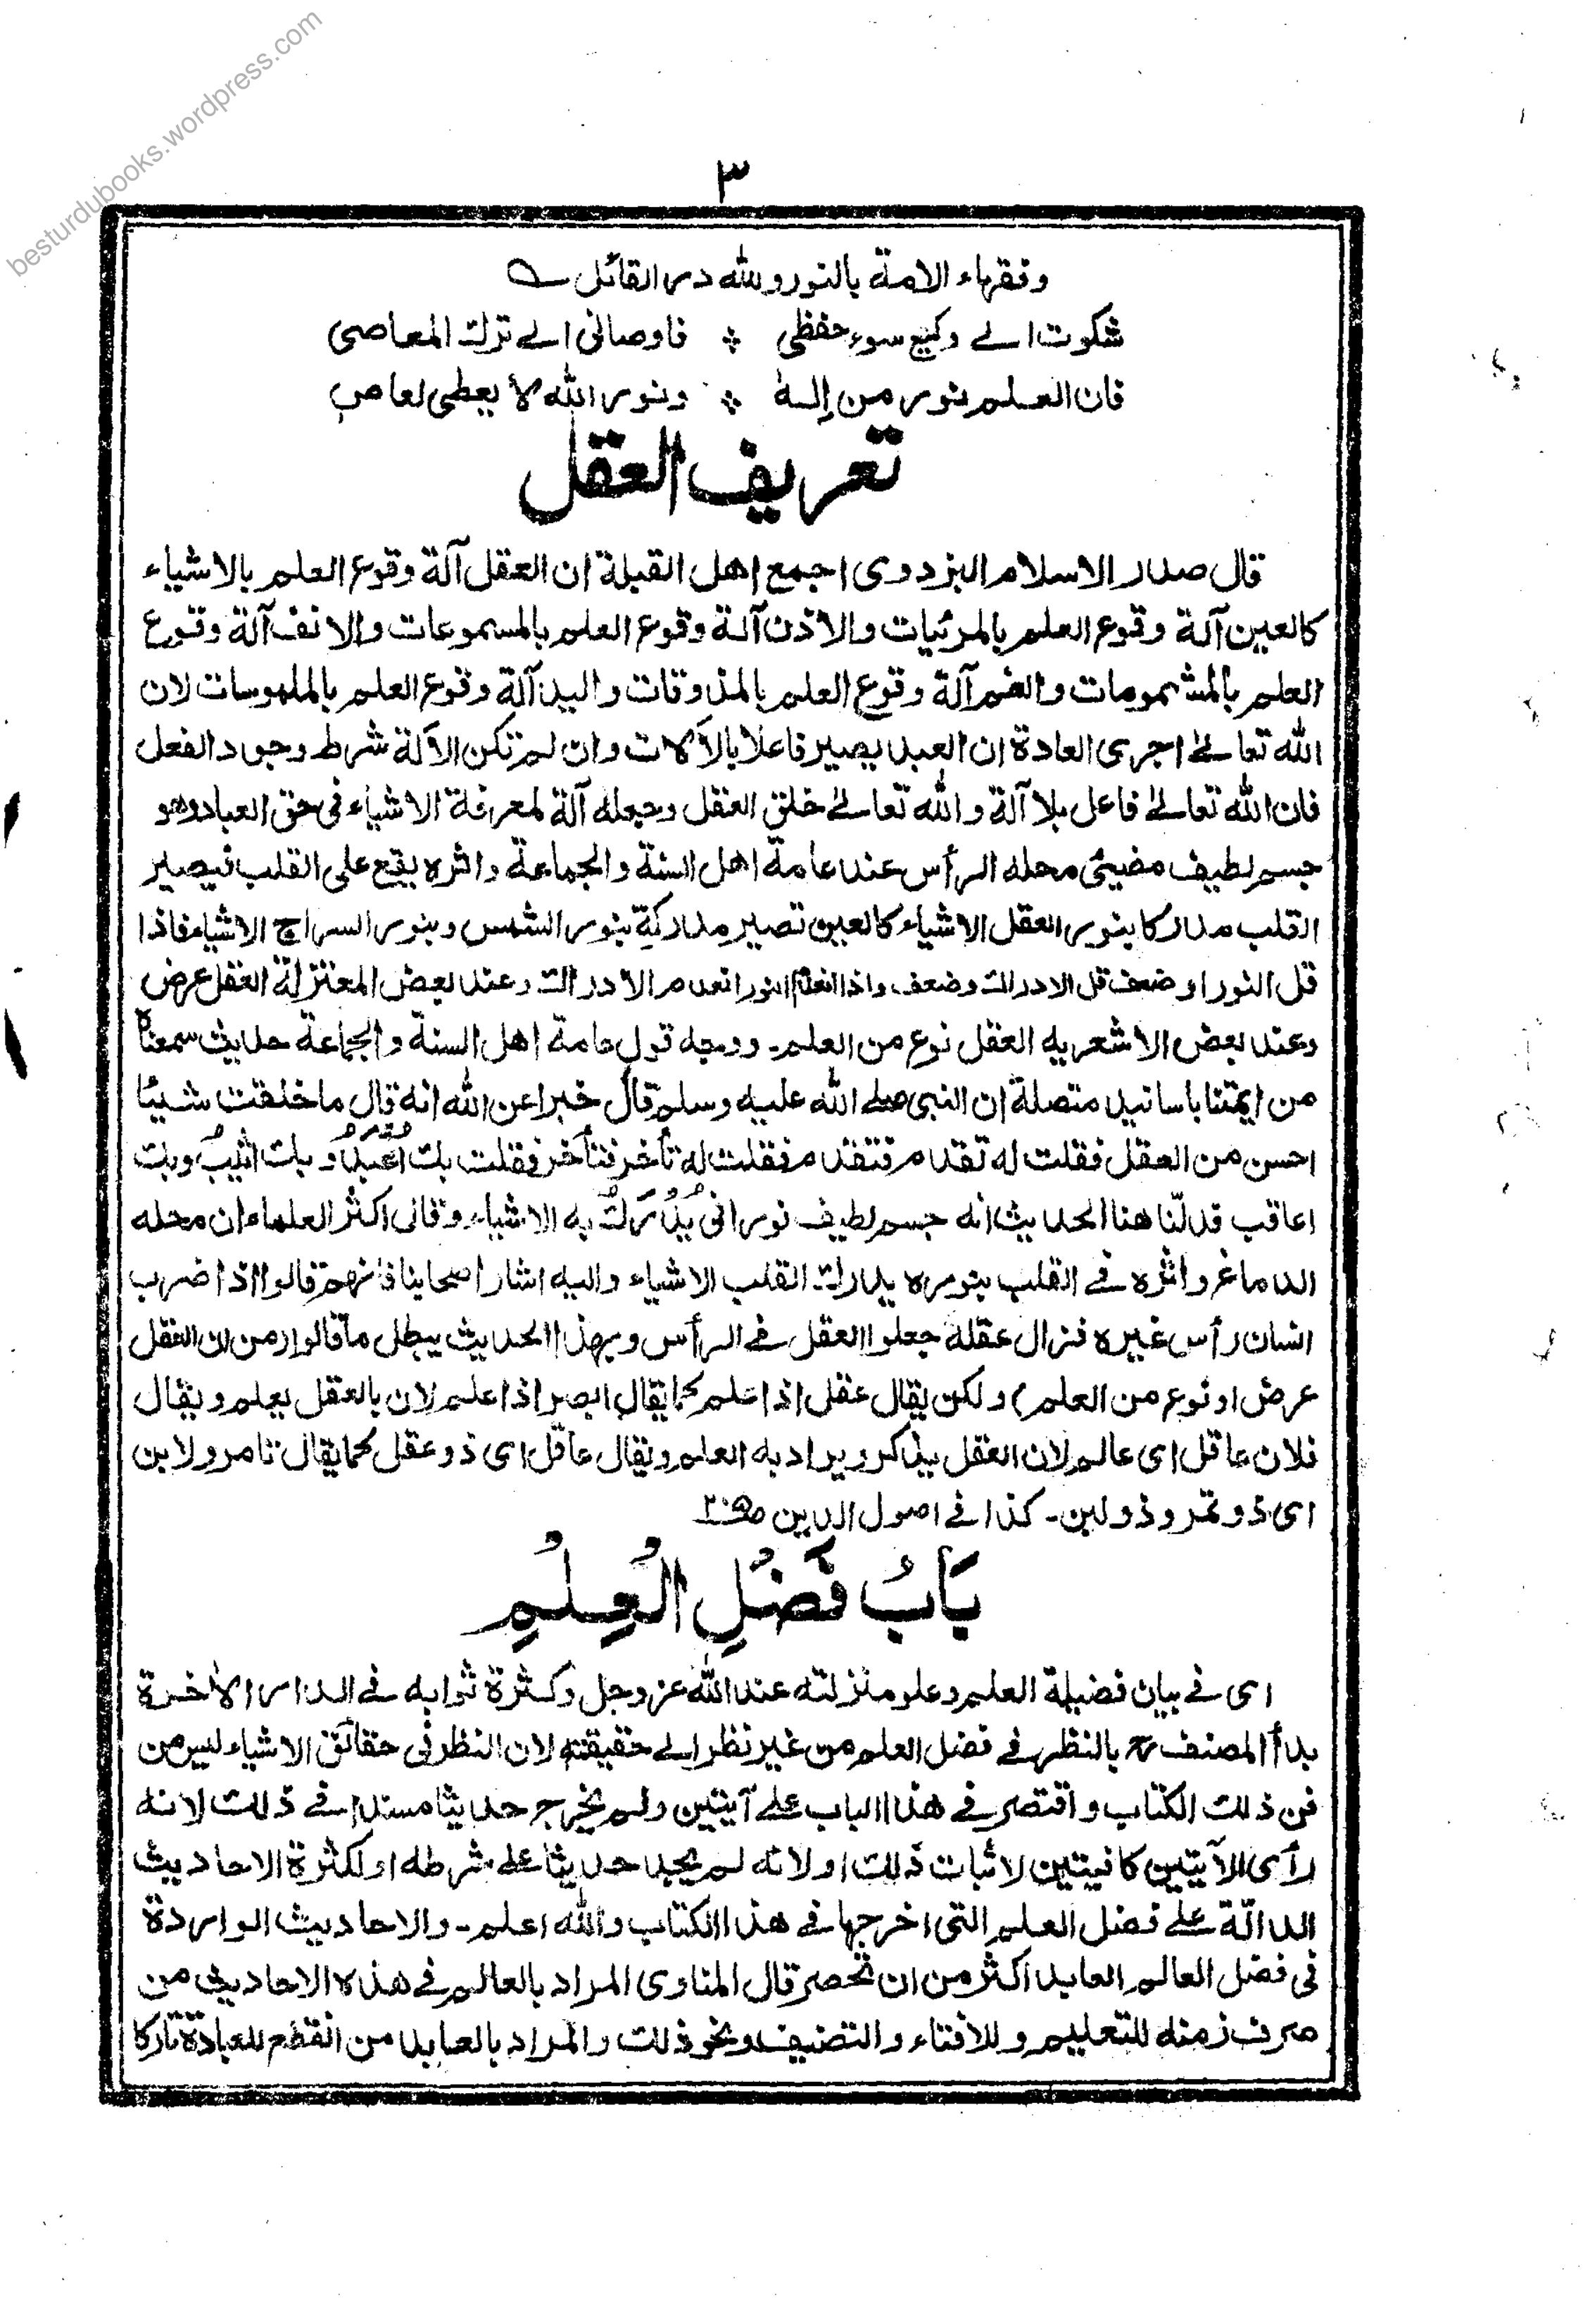 besturdubooks.wordpress.com
٣
وفقهاء الامة بالنور ولله در القائل ؎
شكوت الى وكيع سوء حفظى ❖ فاوصانى الى ترك المعاصى
فان العلم نور من إلهٖ ❖ ونور الله لا يعطى لعاصٍ
تعريف العقل
قال صدر الاسلام البزدوى اجمع اهل القبلة ان العقل آلة وقوع العلم بالاشياء
كالعين آلة وقوع العلم بالمرئيات والاذن آلة وقوع العلم بالمسموعات والانف آلة وقوع
العلم بالمشمومات والفم آلة وقوع العلم بالمذوقات واليد آلة وقوع العلم بالملموسات لان
الله تعالىٰ اجرى العادة ان العبد يصير فاعلا بالآلات وان لم تكن الآلة شرط وجود الفعل
فان الله تعالىٰ فاعل بلا آلة والله تعالىٰ خلق العقل وجعله آلة لمعرفة الاشياء فى حق العباد وهو
جسم لطيف مضيئى محله الرأس عند عامة اهل السنة والجماعة واثره يقع على القلب فيصير
القلب مدركا بنور العقل الاشياء كالعين تصير مدركة بنور الشمس وبنور السراج الاشياء فاذا
قل النور او ضعف قل الادراك وضعف واذا انعدم النور انعدم الادراك وعند بعض المعتزلة العقل عرض
وعند بعض الاشعريه العقل نوع من العلم۔ ووجه قول عامة اهل السنة والجماعة حديث سمعناه
من ايمتنا باسانيد متصلة ان النبى صلى الله عليه وسلم قال خبرا عن الله انه قال ما خلقت شيئا
احسن من العقل فقلت له تقدم فتقدم فقلت له تأخر فتأخر فقلت بك اُعْبَدُ وبك اثيبُ وبك
اعاقب قدلّنا هذا الحديث انه جسم لطيف نورانى يُدْرَكُ به الاشياء وقال اكثر العلماء ان محله
الدماغ واثره فى القلب بنوره يدرك القلب الاشياء واليه اشار اصحابنا فانهم قالوا اذا ضرب
انسان رأس غيره فزال عقله جعلوا العقل فى الرأس وبهذا الحديث يبطل ما قالوا (من ان العقل
عرض او نوع من العلم) ولكن يقال عقل اذا علم كما يقال ابصر اذا علم لان بالعقل يعلم ويقال
فلان عاقل اى عالم لان العقل يذكر ويراد به العلم ويقال عاقل اى ذو عقل كما يقال تامر ولابن
اى ذو تمر وذو لبن۔ كذا فى اصول الدين
بَابُ فَضْلِ الْعِلْمِ
اى فى بيان فضيلة العلم وعلو منزلته عند الله عز وجل وكثرة ثوابه فى الدار الآخرة
بدأ المصنف رح بالنظر فى فضل العلم من غير نظر الى حقيقته لان النظر فى حقائق الاشياء ليس من
فن ذلك الكتاب واقتصر فى هذا الباب على آيتين ولم يخرج حديثا مسندا فى ذلك لانه
رأى الآيتين كافيتين لاثبات ذلك او لانه لم يجد حديثا على شرطه او لكثرة الاحاديث
الدالّة على فضل العلم التى اخرجها فى هذا الكتاب والله اعلم۔ والاحاديث الواردة
فى فضل العالم العابد اكثر من ان تحصر قال المناوى المراد بالعالم فى هذه الاحاديث من
صرف زمنه للتعليم وللافتاء والتصنيف ونحو ذلك والمراد بالعابد من انقطع للعبادة تاركا